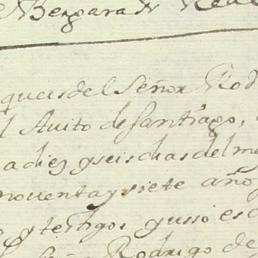 Bergara Dr Real
ques del Señor Rod
l Auito de Santiago,
a diez y seis dias del m
noventa y siete año
e y testigos y uso es
Rodrigo de